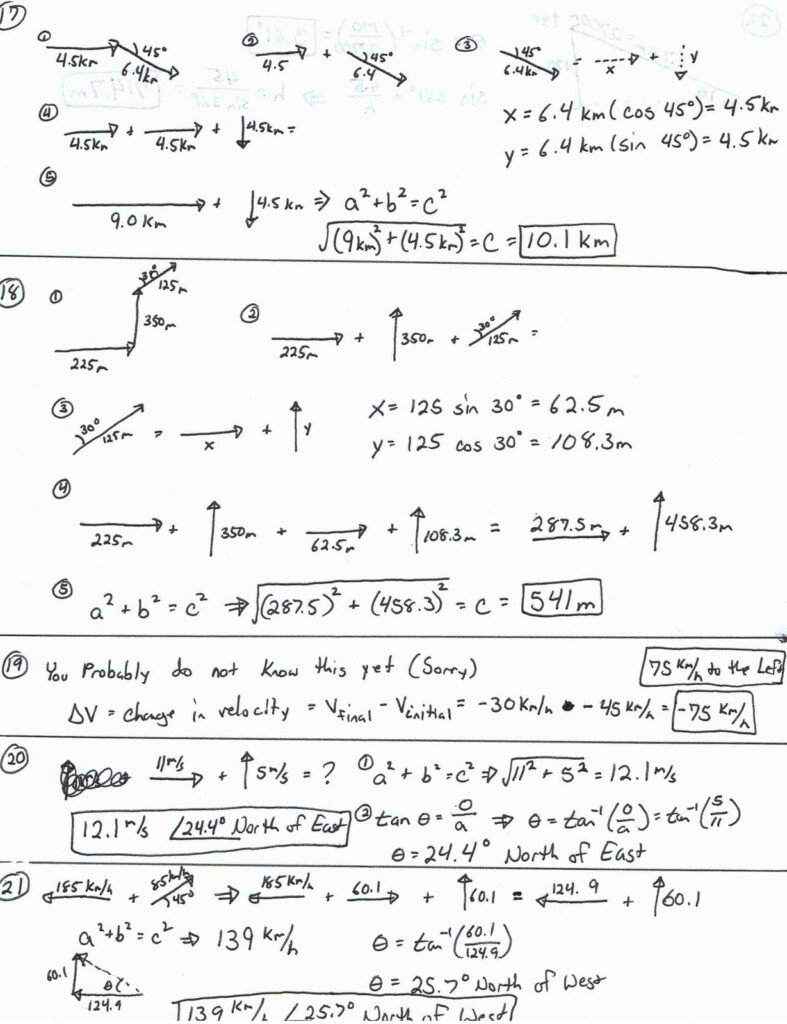 17
① 4.5km 45° 6.4km ② 4.5 + 45° 6.4 ③ 45° 6.4km = x + y
x = 6.4 km (cos 45°) = 4.5 km
y = 6.4 km (sin 45°) = 4.5 km
④ 4.5km + 4.5km + 4.5km =
⑤ 9.0 km + 4.5 km ⇒ a² + b² = c²
√(9km)² + (4.5km)² = c = 10.1 km
18
① 225m 350m 30° 125m ② 225m + 350m + 30° 125m =
③ 30° 125m = x + y
x = 125 sin 30° = 62.5 m
y = 125 cos 30° = 108.3m
④ 225m + 350m + 62.5m + 108.3m = 287.5m + 458.3m
⑤ a² + b² = c² ⇒ √(287.5)² + (458.3)² = c = 541 m
19 You Probably do not know this yet (Sorry) 75 km/h to the Left
ΔV = change in velocity = Vfinal - Vinitial = -30 km/h - 45 km/h = -75 km/h
20 11 m/s + 5 m/s = ? ① a² + b² = c² ⇒ √11² + 5² = 12.1 m/s
12.1 m/s ∠24.4° North of East ② tan θ = o/a ⇒ θ = tan⁻¹(o/a) = tan⁻¹(5/11)
θ = 24.4° North of East
21 185 km/h + 85 km/h 45° ⇒ 185 km/h + 60.1 + 60.1 = 124.9 + 60.1
a² + b² = c² ⇒ 139 km/h θ = tan⁻¹(60.1/124.9)
60.1 θ 124.9 θ = 25.7° North of West
139 km/h ∠25.7° North of West